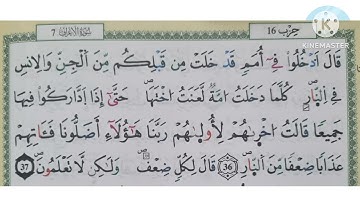 سورة الأعراف 7
حزب 16
KINEMASTER
قَالَ ٱدْخُلُوا فِے أُمَمٍ قَدْ خَلَتْ مِن قَبْلِكُم مِّنَ ٱلْجِنِّ وَالِانسِ
فِے ٱلنّ۪ارِ كُلَّمَا دَخَلَتُ امَّةٌ لَّعَنَتُ اخْتَهَا حَتَّىٰ إِذَا ٱدَّارَكُوا فِيهَا
جَمِيعًا قَالَتُ اخْر۪يٰهُمْ لِأُول۪يٰهُمْ رَبَّنَا هَـٰٓؤُلَآءِ اَضَلُّونَا فَـَٔاتِهِمْ
عَذَابًا ضِعْفًا مِّنَ ٱلنّ۪ارِ 36 قَالَ لِكُلٍّ ضِعْفٌ وَلَـٰكِن لَّا تَعْلَمُونَ 37